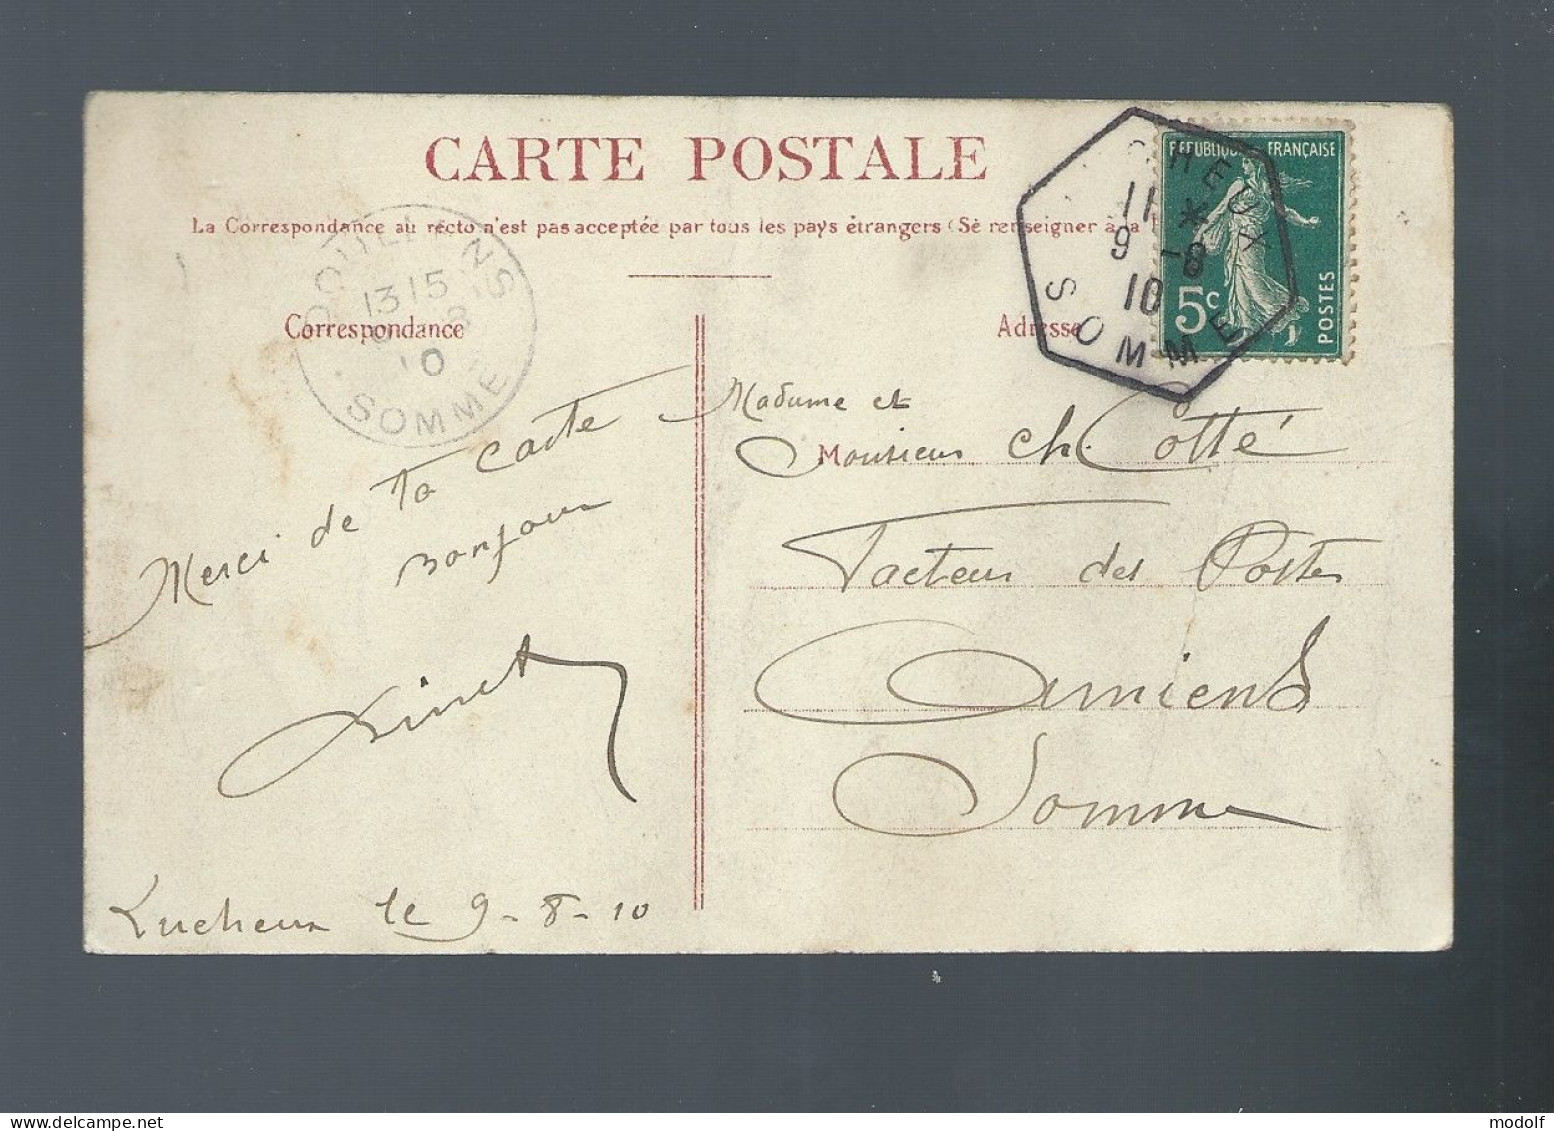 CARTE POSTALE
La Correspondance au recto n'est pas acceptée par tous les pays étrangers (Se renseigner à la
Correspondance
Adresse
DOULLENS
1315
8
10
SOMME
CHEUX
11 *
9 -8
10
SOMME
REPUBLIQUE FRANÇAISE
5c
POSTES
Merci de ta carte
Bonjour
Lucheux le 9-8-10
Madame et
Monsieur Ch. Cotté
Facteur des Postes
Amiens
Somme
modolf